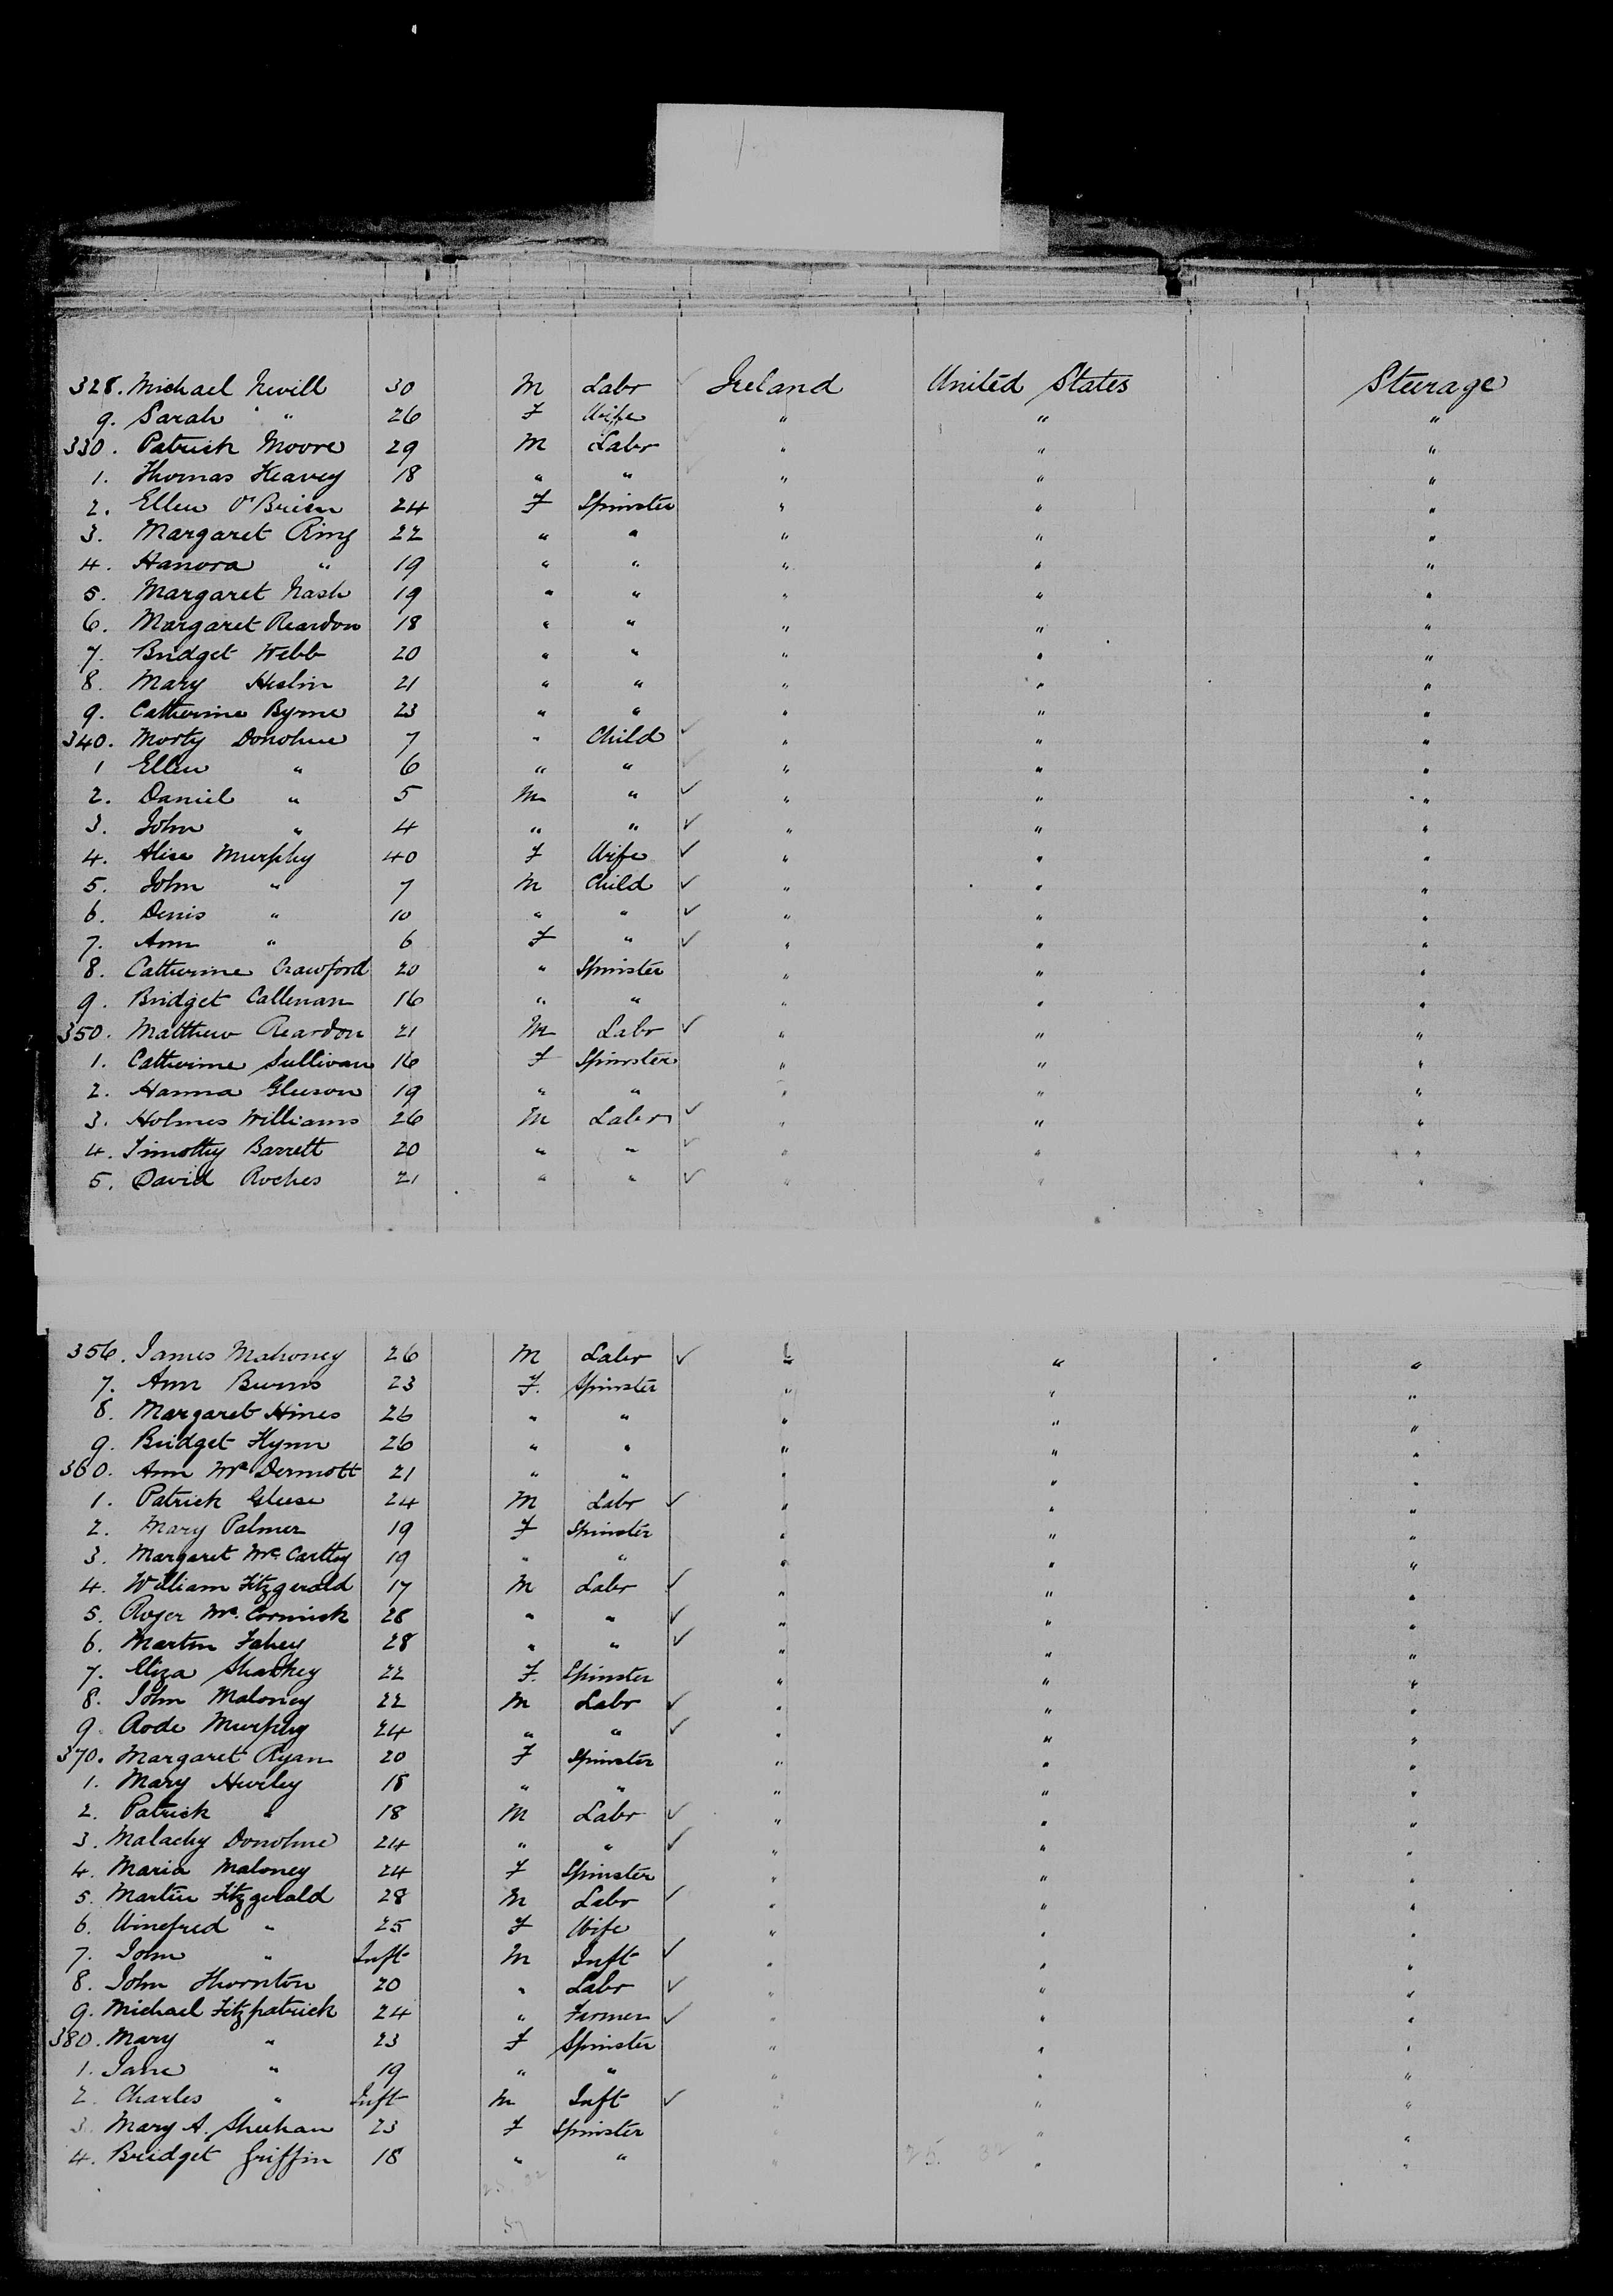 328. Michael Nevill 30 M Labr Ireland United States Steerage
9. Sarah " 26 F Wife " " "
330. Patrick Moore 29 M Labr " " "
1. Thomas Heavey 18 " " " " "
2. Ellen O'Brien 24 F Spinster " " "
3. Margaret Ring 22 " " " " "
4. Hanora " 19 " " " " "
5. Margaret Nash 19 " " " " "
6. Margaret Reardon 18 " " " " "
7. Bridget Webb 20 " " " " "
8. Mary Heslin 21 " " " " "
9. Catherine Byrne 23 " " " " "
340. Morty Donohue 7 " Child " " "
1 Ellen " 6 " " " " "
2. Daniel " 5 M " " " "
3. John " 4 " " " " "
4. Alice Murphy 40 F Wife " " "
5. John " 7 M Child " " "
6. Denis " 10 " " " " "
7. Ann " 6 F " " " "
8. Catherine Crawford 20 " Spinster " " "
9. Bridget Callenan 16 " " " " "
350. Matthew Reardon 21 M Labr " " "
1. Catherine Sullivan 16 F Spinster " " "
2. Hanna Gleeson 19 " " " " "
3. Holmes Williams 26 M Labr " " "
4. Timothy Barrett 20 " " " " "
5. David Roches 21 " " " " "
356. James Mahoney 26 M Labr " " "
7. Ann Burns 23 F. Spinster " " "
8. Margaret Hines 26 " " " " "
9. Bridget Flynn 26 " " " " "
360. Ann McDermott 21 " " " " "
1. Patrick Gleese 24 M Labr " " "
2. Mary Palmer 19 F Spinster " " "
3. Margaret McCarthy 19 " " " " "
4. William Fitzgerald 17 M Labr " " "
5. Roger McCormick 28 " " " " "
6. Martin Fahey 28 " " " " "
7. Eliza Sharkey 22 F. Spinster " " "
8. John Maloney 22 M Labr " " "
9. Rode Murphy 24 " " " " "
370. Margaret Ryan 20 F Spinster " " "
1. Mary Hurley 18 " " " " "
2. Patrick " 18 M Labr " " "
3. Malachy Donohue 24 " " " " "
4. Maria Maloney 24 F Spinster " " "
5. Martin Fitzgerald 28 M Labr " " "
6. Winefred " 25 F Wife " " "
7. John " Inft M Inft " " "
8. John Thornton 20 " Labr " " "
9. Michael Fitzpatrick 24 " Farmer " " "
380. Mary " 23 F Spinster " " "
1. Jane " 19 " " " " "
2. Charles " Inft M Inft " " "
3. Mary A. Sheehan 23 F Spinster " " "
4. Bridget Griffin 18 " " " " "
25. 32